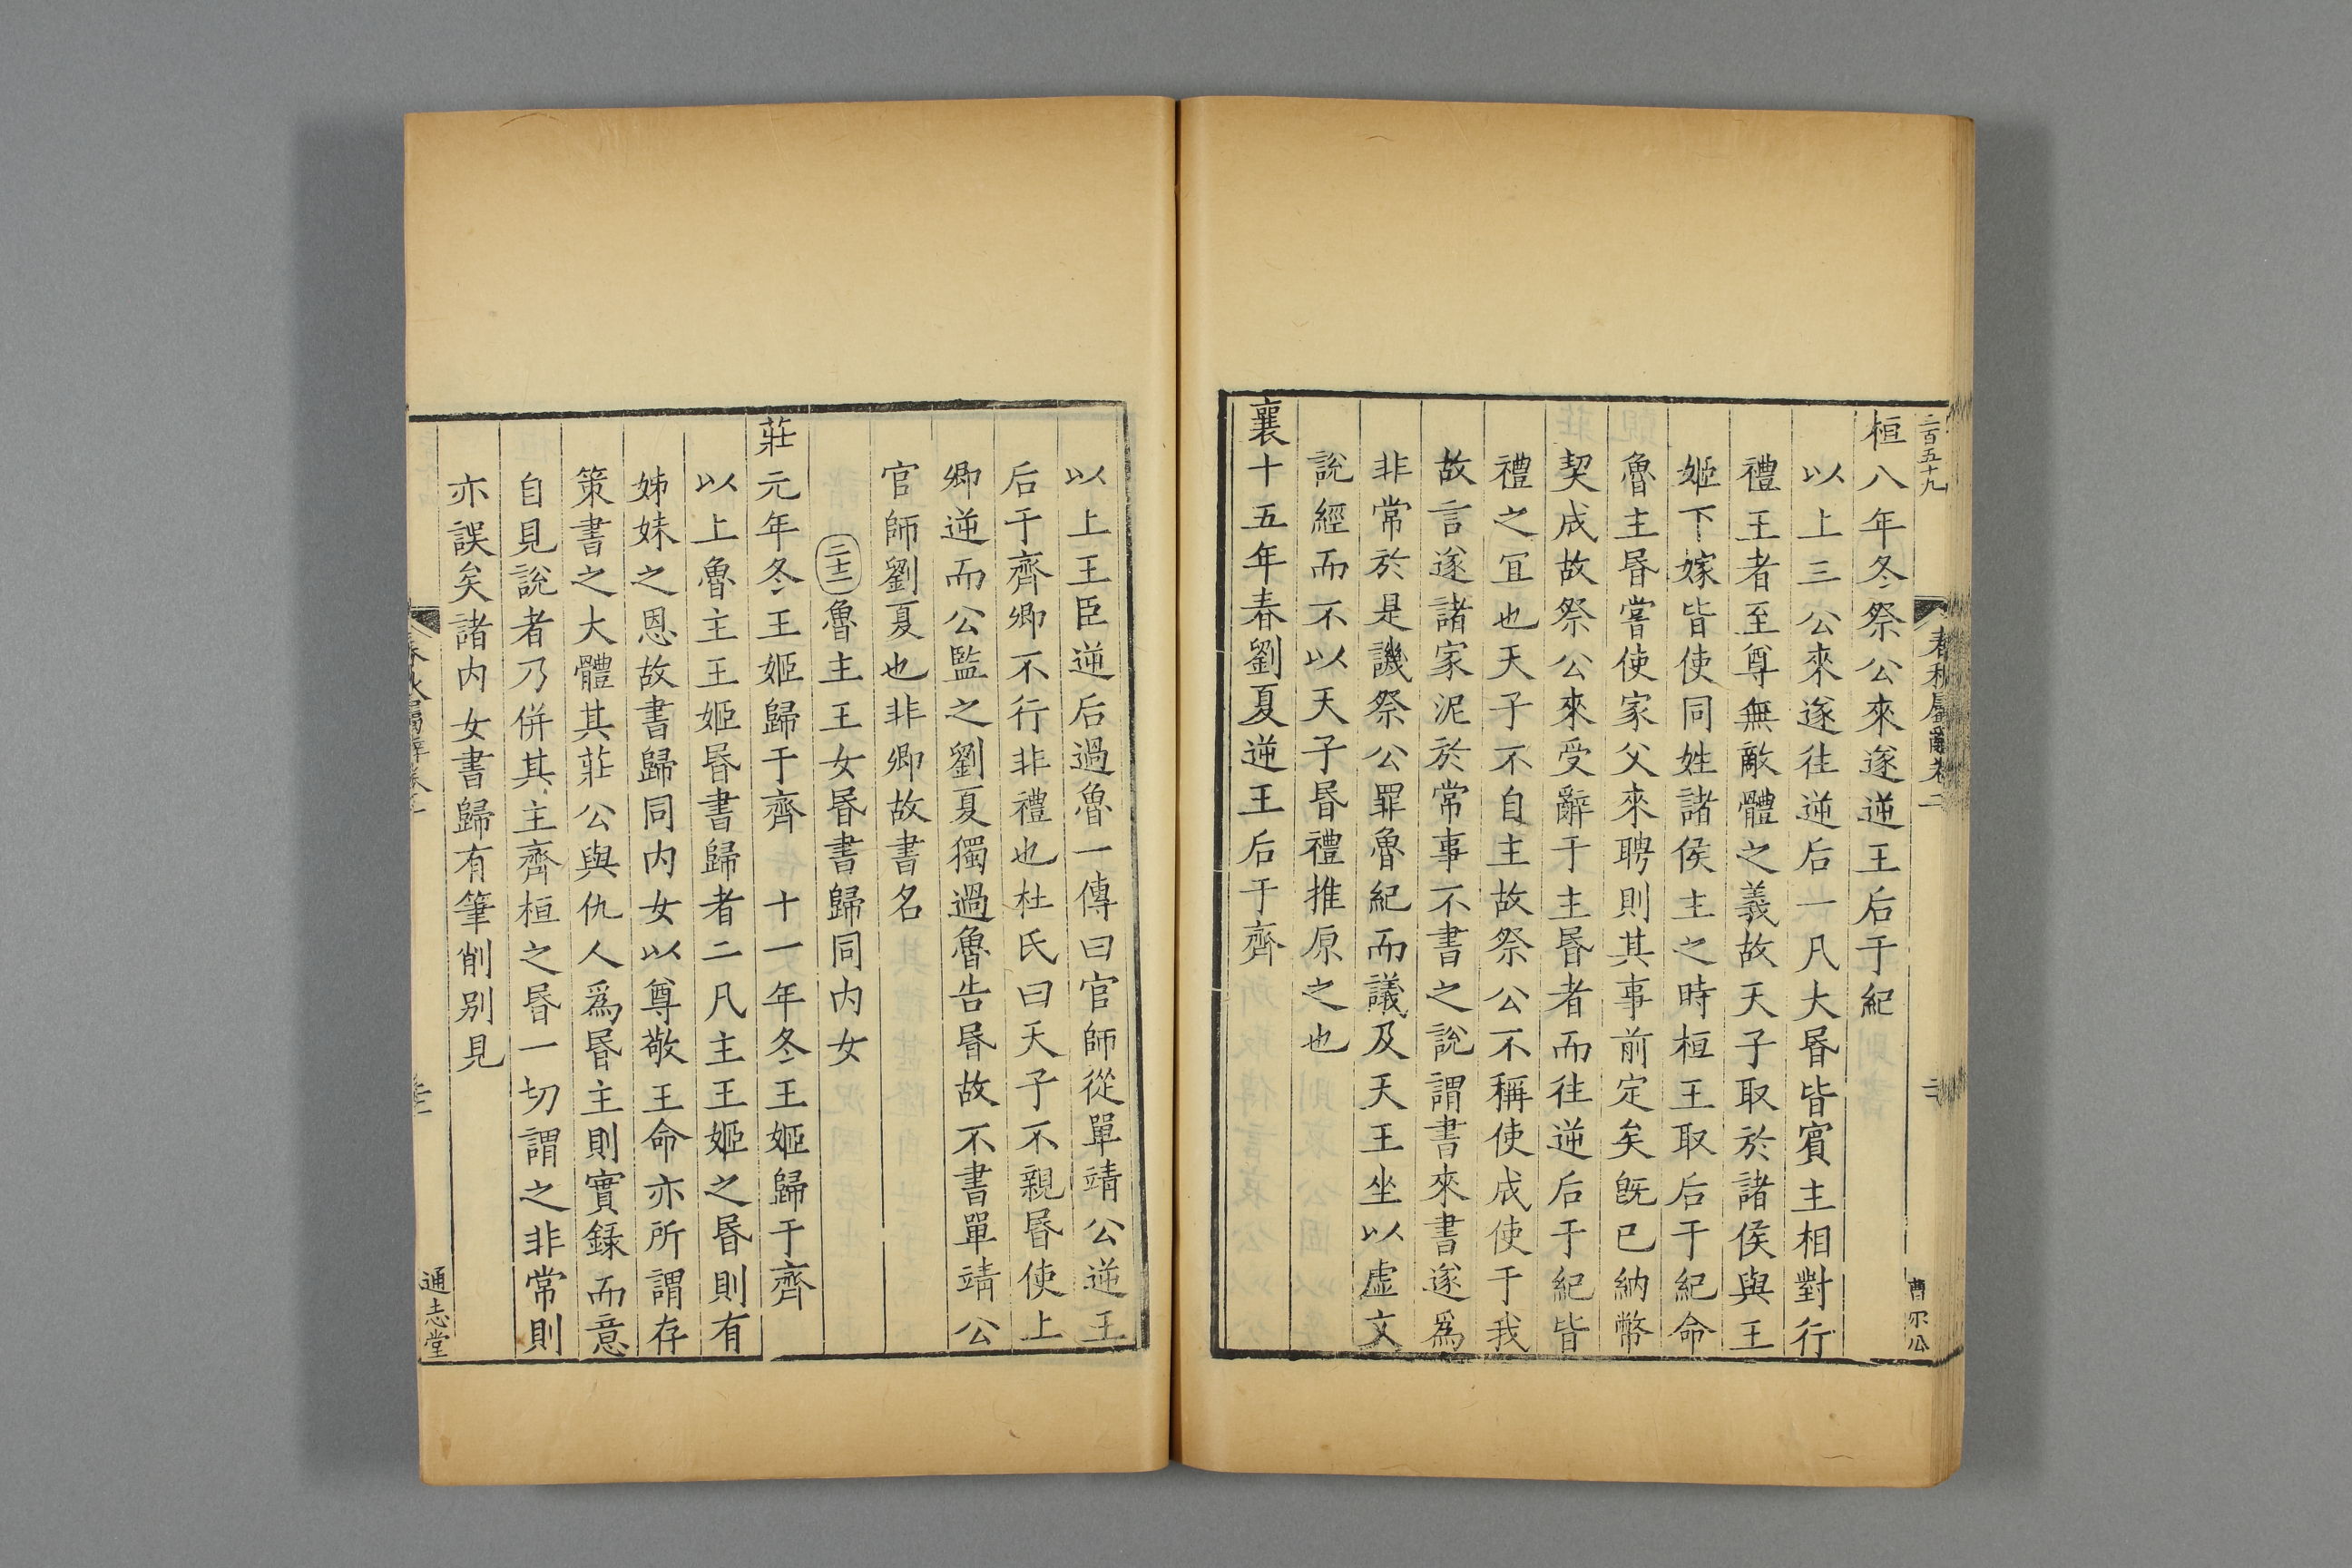 二百五十九
春秋屬辭卷二
曹尔公
桓八年冬祭公來遂逆王后于紀
以上三公來遂往逆后一凡大昬皆賓主相對行
禮王者至尊無敵體之義故天子取於諸侯與王
姬下嫁皆使同姓諸侯主之時桓王取后于紀命
魯主昬嘗使家父來聘則其事前定矣旣已納幣
契成故祭公來受辭于主昬者而往逆后于紀皆
禮之冝也天子不自主故祭公不稱使成使于我
故言遂諸家泥於常事不書之說謂書來書遂爲
非常於是譏祭公罪魯紀而議及天王坐以虛文
說經而不以天子昬禮推原之也
襄十五年春劉夏逆王后于齊
以上王臣逆后過魯一傳曰官師從單靖公逆王
后于齊卿不行非禮也杜氏曰天子不親昬使上
卿逆而公監之劉夏獨過魯告昬故不書單靖公
官師劉夏也非卿故書名
二十二魯主王女昬書歸同内女
莊元年冬王姬歸于齊　十一年冬王姬歸于齊
以上魯主王姬昬書歸者二凡主王姬之昬則有
姊妹之恩故書歸同内女以尊敬王命亦所謂存
策書之大體其莊公與仇人爲昬主則實錄而意
自見說者乃併其主齊桓之昬一切謂之非常則
亦誤矣諸内女書歸有筆削别見
通志堂